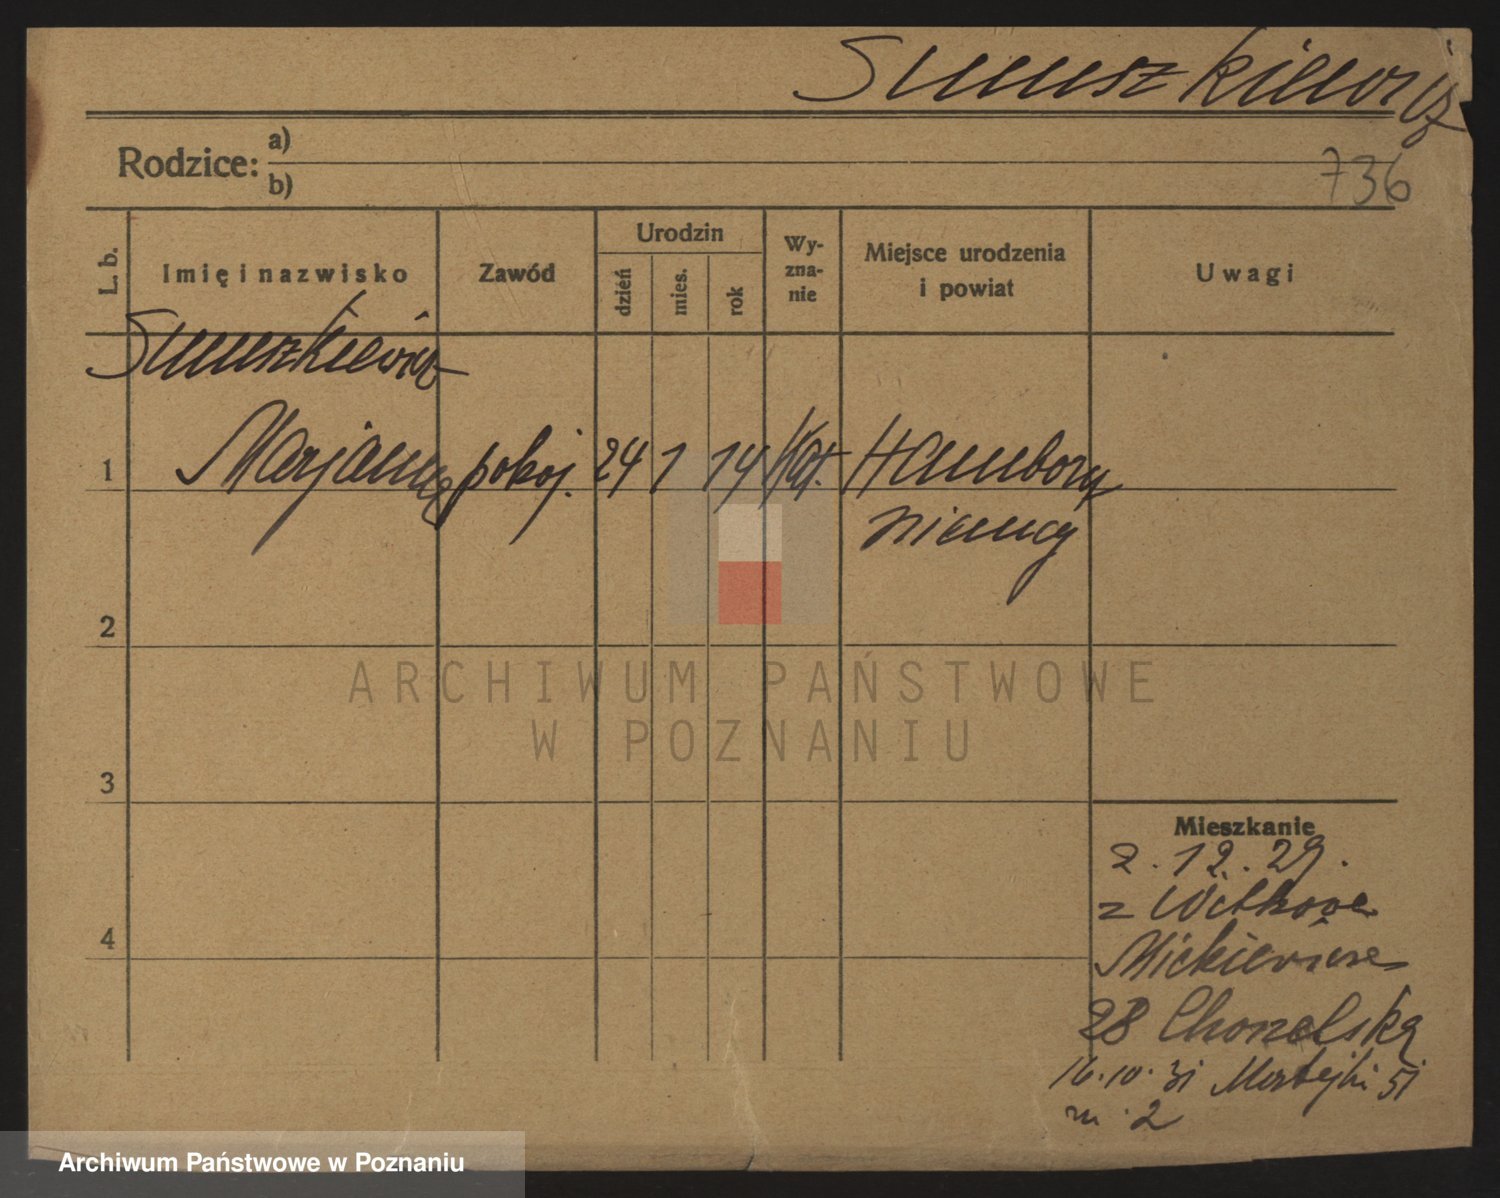 Sunuszkiewicz
Rodzice: a)
b)
736
L. b.
Imię i nazwisko
Zawód
Urodzin
dzień
mies.
rok
Wy-
zna-
nie
Miejsce urodzenia
i powiat
Uwagi
Sunuszkiewicz
1 Marjanna pokoj. 24 1 14 Kat. Hamborn
Niemcy
2
3
4
Mieszkanie
2.12.29.
z Witkowa
Mickiewicza
28
16.10.31 Matejki 51
m. 2
ARCHIWUM PAŃSTWOWE
W POZNANIU
Archiwum Państwowe w Poznaniu